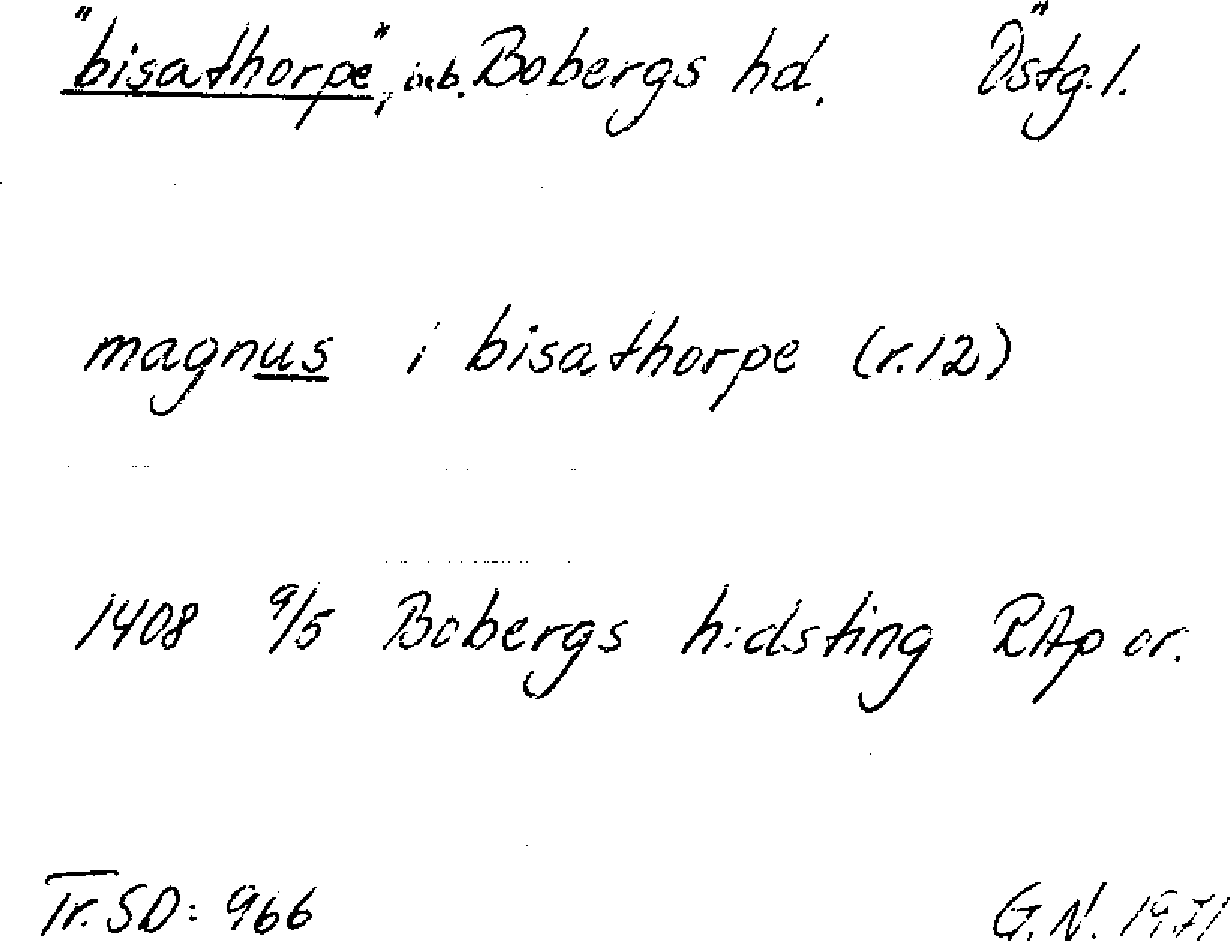 "bisathorpe", ob. Bobergs hd. Östg.l.
magnus i bisathorpe (r.12)
1408 9/5 Bobergs h:dsting RAp or.
Tr. SD: 966 G.N. 1971